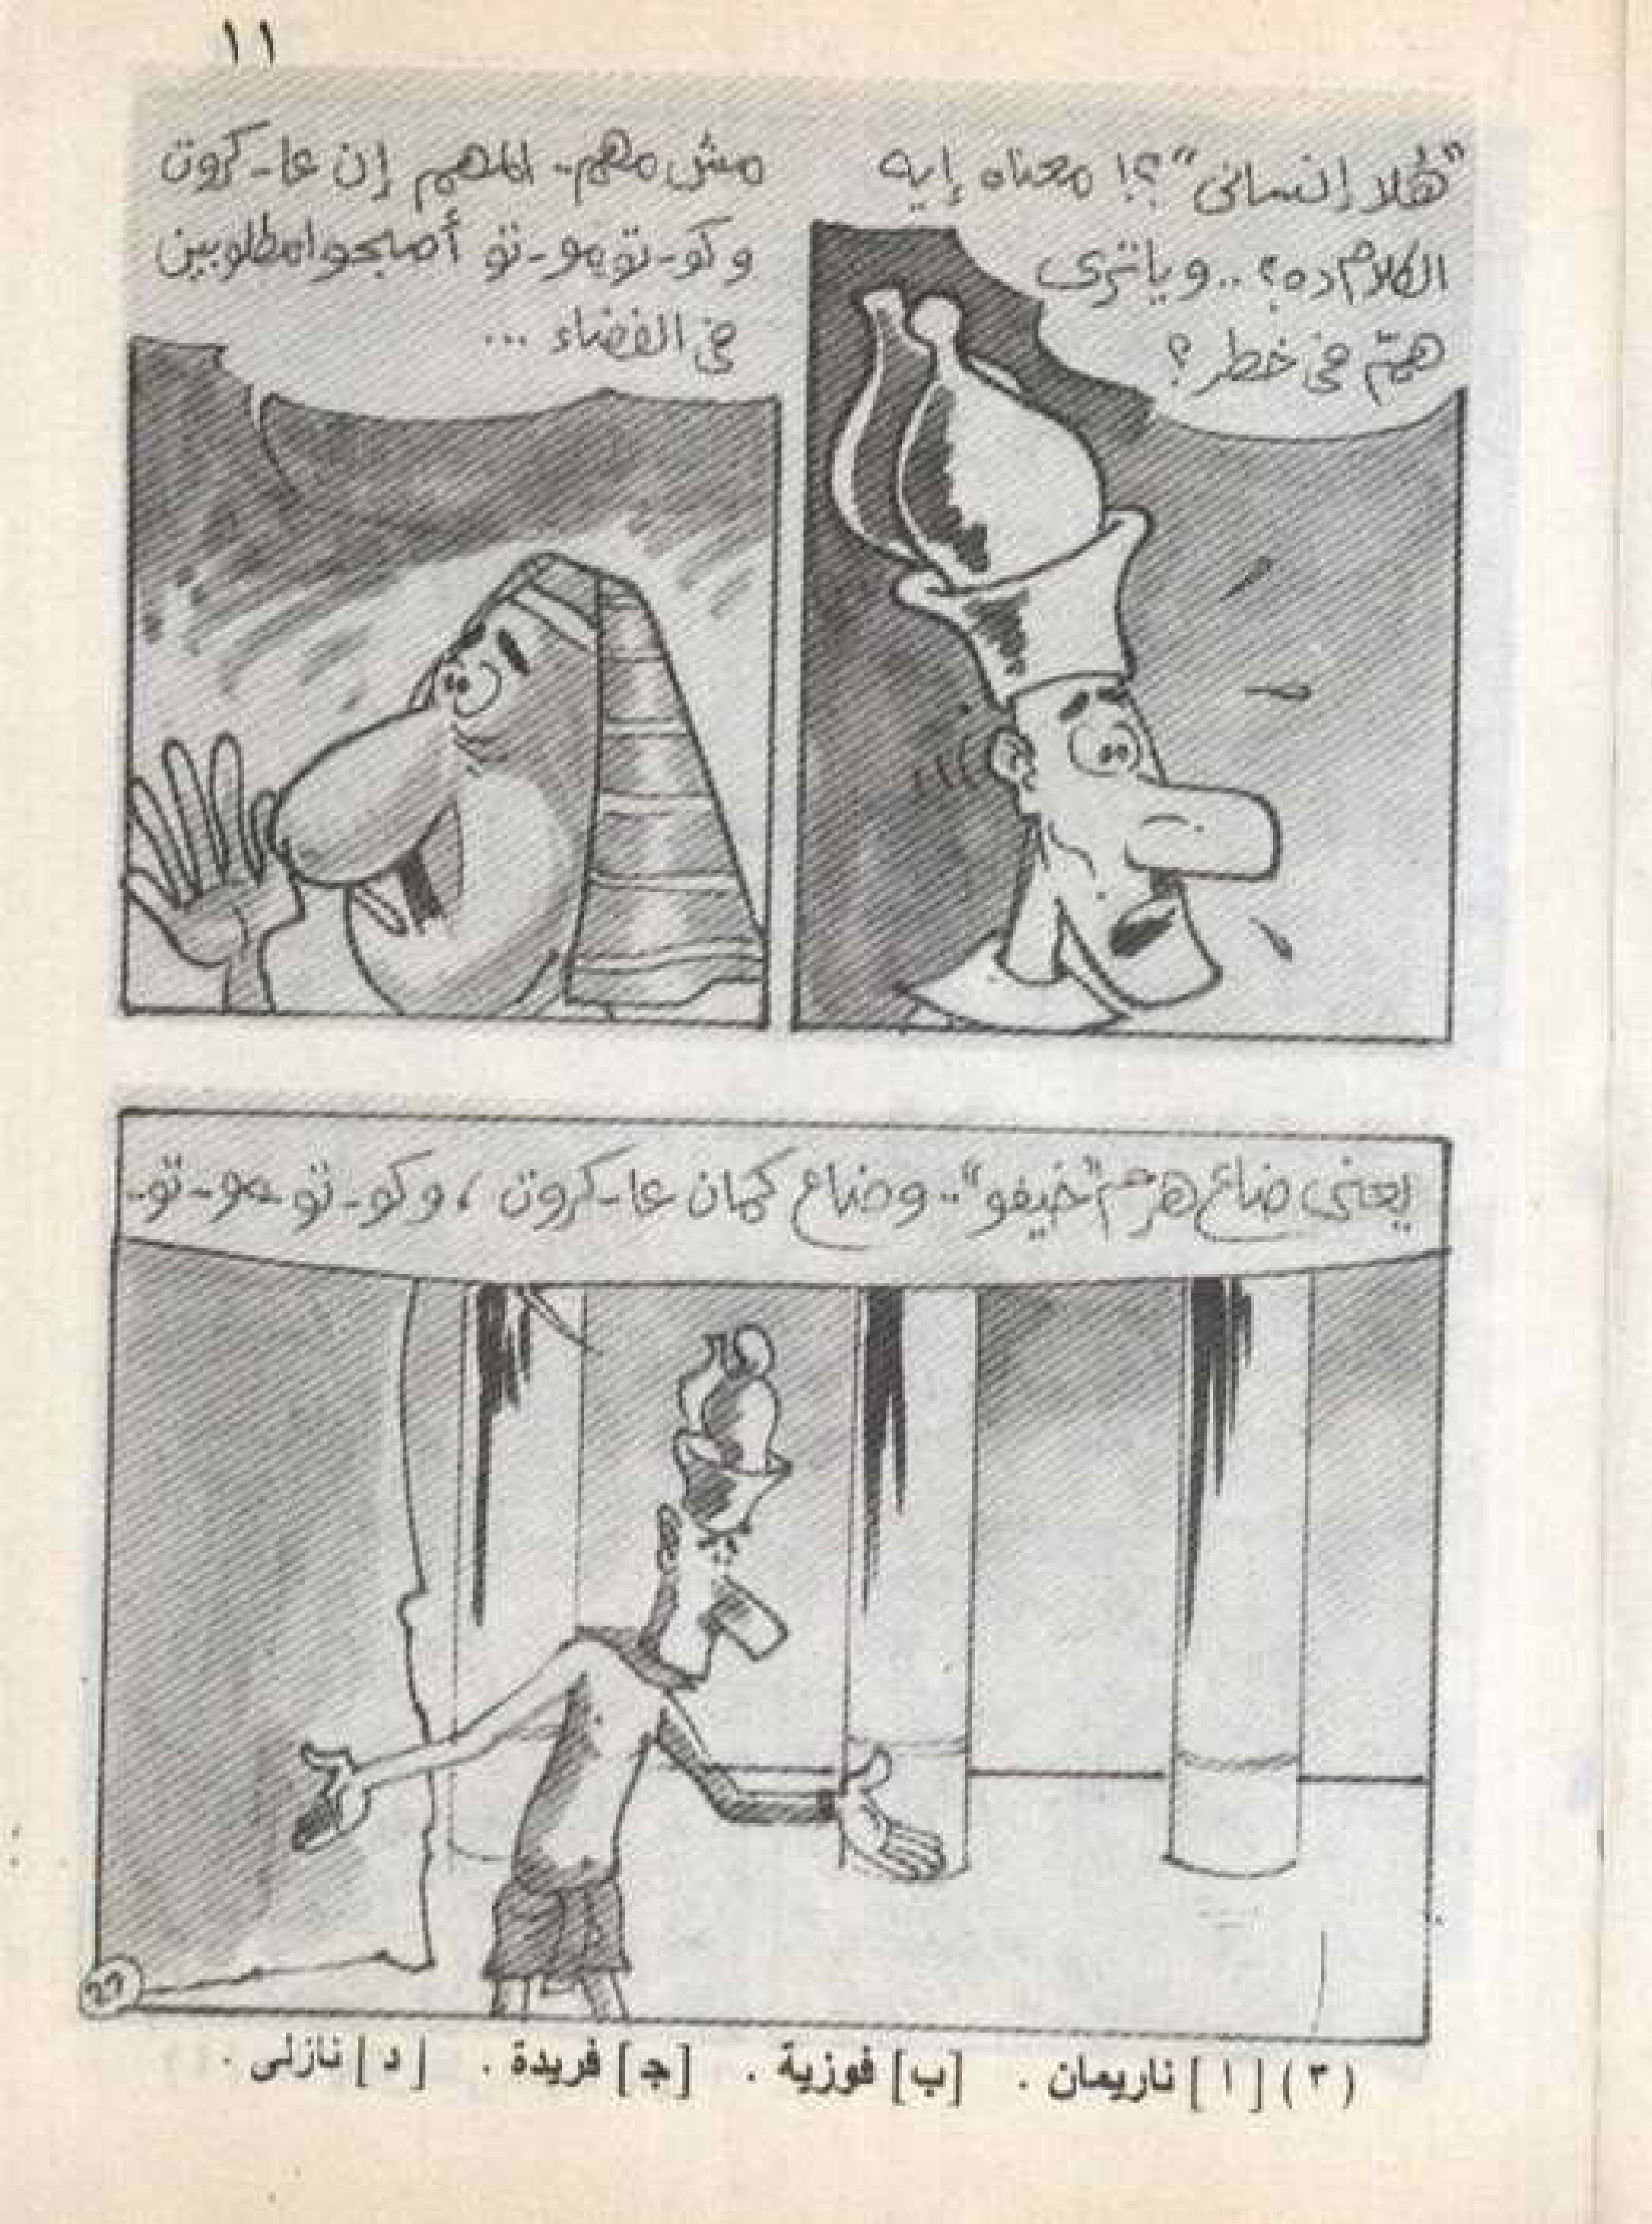 ١١
"هُلا إنسانى"؟! معناه إيه
الكلام ده؟.. وياترى
همّ فى خطر؟
مش مهم.. المهم إن عا-كروت
وكو-تو-مو-تو أصبحوا مطلوبين
فى الفضاء ...
يعنى ضاع هرم "خيفو".. وضاع كمان عا-كروت، وكو-تو-مو-تو..
(٣) [ا] ناريمان . [ب] فوزية . [جـ] فريدة . [د] نازلى .